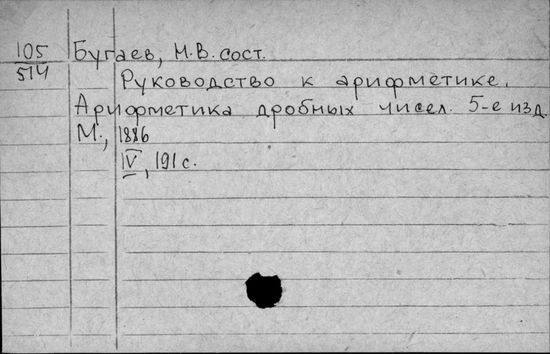 105
514
Бугаев, Н.В. сост.
Руководство к арифметике.
Арифметика дробных чисел. 5-е изд.
М., 1886
IV, 191 с.